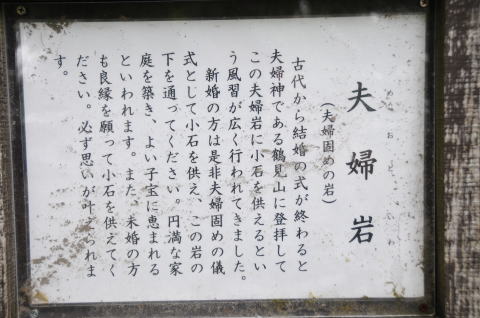 夫婦岩
めおといわ
(夫婦固めの岩)
古代から結婚の式が終わると
夫婦神である鶴見山に登拝して
この夫婦岩に小石を供えるとい
う風習が広く行われてきました。
新婚の方は是非夫婦固めの儀
式として小石を供え、この岩の
下を通ってください。円満な家
庭を築き、よい子宝に恵まれる
といわれます。また、未婚の方
も良縁を願って小石を供えてく
ださい。必ず思いが叶えられま
す。